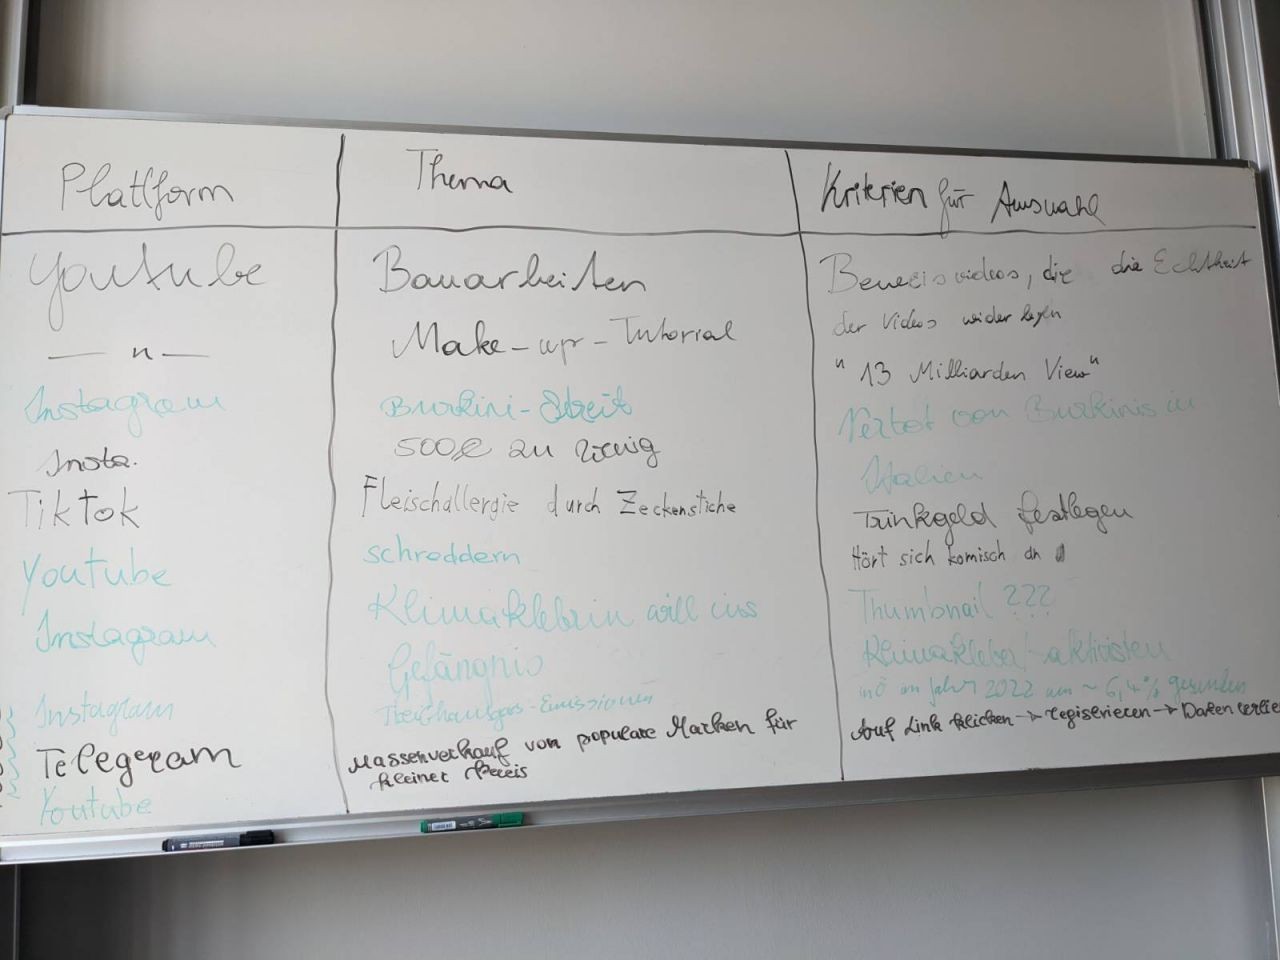 Platform Thema Kriterien für Auswahl
Youtube Bauarbeiten Beweisvideos, die die Echtheit
der Videos widerlegen
— " — Make-up-Tutorial "13 Milliarden View"
Instagram Burkini-Streit Verbot von Burkinis in
Italien
Insta. 500€ zu wenig Trinkgeld festlegen
TikTok Fleischallergie durch Zeckenstiche Hört sich komisch an
Youtube schreddern Thumbnail ???
Instagram Klimakleberin will ins Klimakleber/-aktivisten
Gefängnis
Instagram Treibhausgas-Emissionen in Ö im Jahr 2022 um ~ 6,4% gesunken
Telegram Massenverkauf von populare Marken für Auf Link klicken → registrieren → Daten
kleiner Preis
Youtube